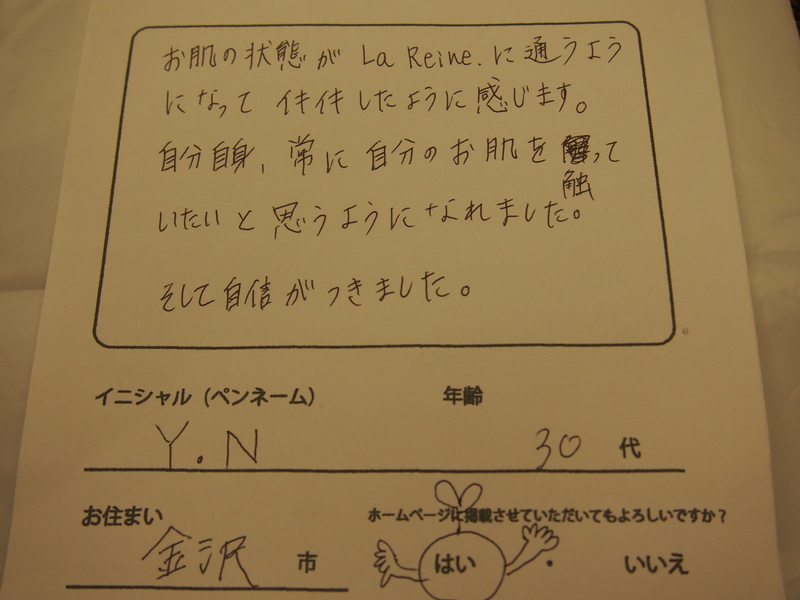 お肌の状態が La Reine. に通うよう
になって イキイキしたように感じます。
自分自身、常に自分のお肌を触って
いたいと思うようになれました。
そして自信がつきました。
イニシャル（ペンネーム） 年齢
Y.N 30 代
お住まい ホームページに掲載させていただいてもよろしいですか？
金沢 市 はい ・ いいえ